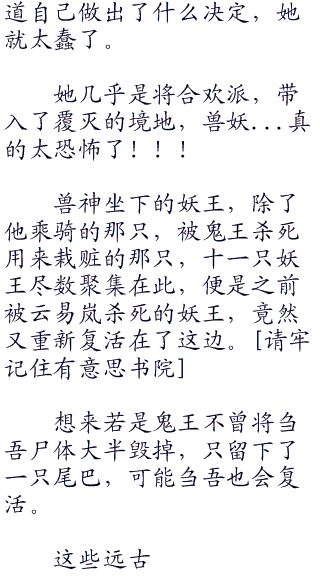 道自己做出了什么决定，她
就太蠢了。
她几乎是将合欢派，带
入了覆灭的境地，兽妖...真
的太恐怖了！！！
兽神坐下的妖王，除了
他乘骑的那只，被鬼王杀死
用来栽赃的那只，十一只妖
王尽数聚集在此，便是之前
被云易岚杀死的妖王，竟然
又重新复活在了这边。[请牢
记住有意思书院]
想来若是鬼王不曾将刍
吾尸体大半毁掉，只留下了
一只尾巴，可能刍吾也会复
活。
这些远古